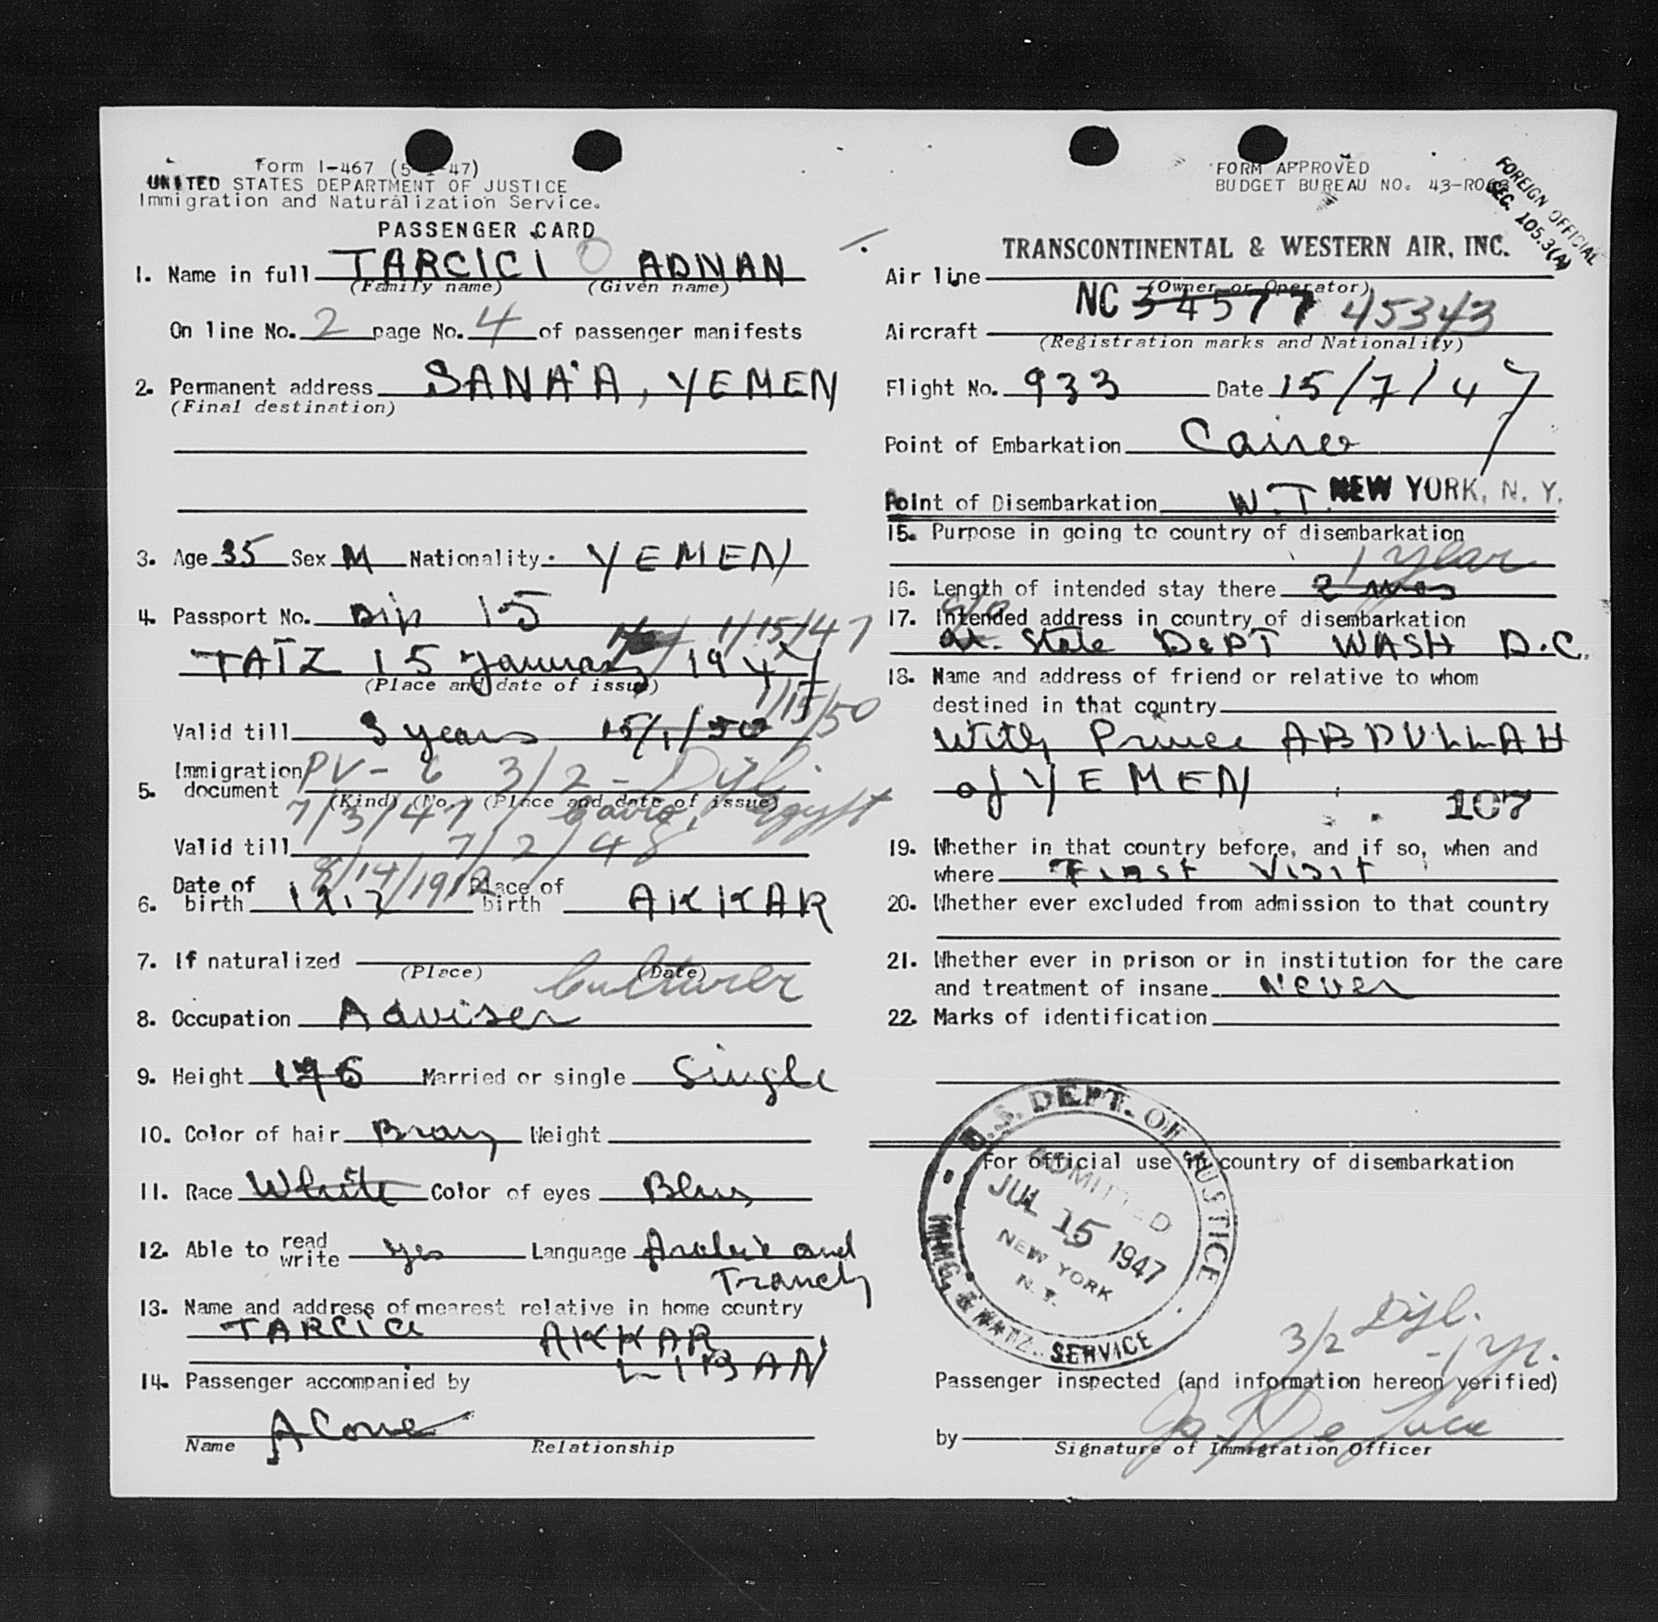 Form I-467 (5-1-47)
UNITED STATES DEPARTMENT OF JUSTICE
Immigration and Naturalization Service.
PASSENGER CARD
1. Name in full TARCICI ADNAN
(Family name) (Given name)
On line No. 2 page No. 4 of passenger manifests
2. Permanent address SANA'A, YEMEN
(Final destination)
3. Age 35 Sex M Nationality YEMEN
4. Passport No. Dip 15
1/15/47
TAIZ 15 January 1947
(Place and date of issue)
1/15/50
Valid till 3 years 15/1/50
5. Immigration document PV- 6 3/2 - Dipl.
(Kind) (No.) (Place and date of issue)
7/3/47 Cairo, Egypt
Valid till 7/2/48
8/14/1912
6. Date of birth 1912 Place of birth AKKAR
7. If naturalized
(Place) (Date)
8. Occupation Adviser
9. Height 176 Married or single Single
10. Color of hair Weight
11. Race White Color of eyes
12. Able to read write yes Language Arabic and
French
13. Name and address of nearest relative in home country
TARCICI AKKAR
LIBAN
14. Passenger accompanied by
Alone
Name Relationship
FORM APPROVED
BUDGET BUREAU NO. 43-RO
FOREIGN OFFICIAL
SEC. 105.3(A)
TRANSCONTINENTAL & WESTERN AIR, INC.
Air line
(Owner or Operator)
Aircraft NC 34577 45343
(Registration marks and Nationality)
Flight No. 933 Date 15/7/47
Point of Embarkation Cairo
Point of Disembarkation W.T. NEW YORK, N. Y.
15. Purpose in going to country of disembarkation
1 year
16. Length of intended stay there 2 mos
17. Intended address in country of disembarkation
c/o
at. State DEPT WASH D.C.
18. Name and address of friend or relative to whom
destined in that country
With Prince ABDULLAH
of YEMEN
107
19. Whether in that country before, and if so, when and
where First Visit
20. Whether ever excluded from admission to that country
21. Whether ever in prison or in institution for the care
and treatment of insane Never
22. Marks of identification
For official use in country of disembarkation
U.S. DEPT. OF JUSTICE
ADMITTED
JUL 15 1947
NEW YORK
N. Y.
IMMG. & NATZ. SERVICE
3/2 Dipl.
-1 Yr.
Passenger inspected (and information hereon verified)
by De Luca
Signature of Immigration Officer